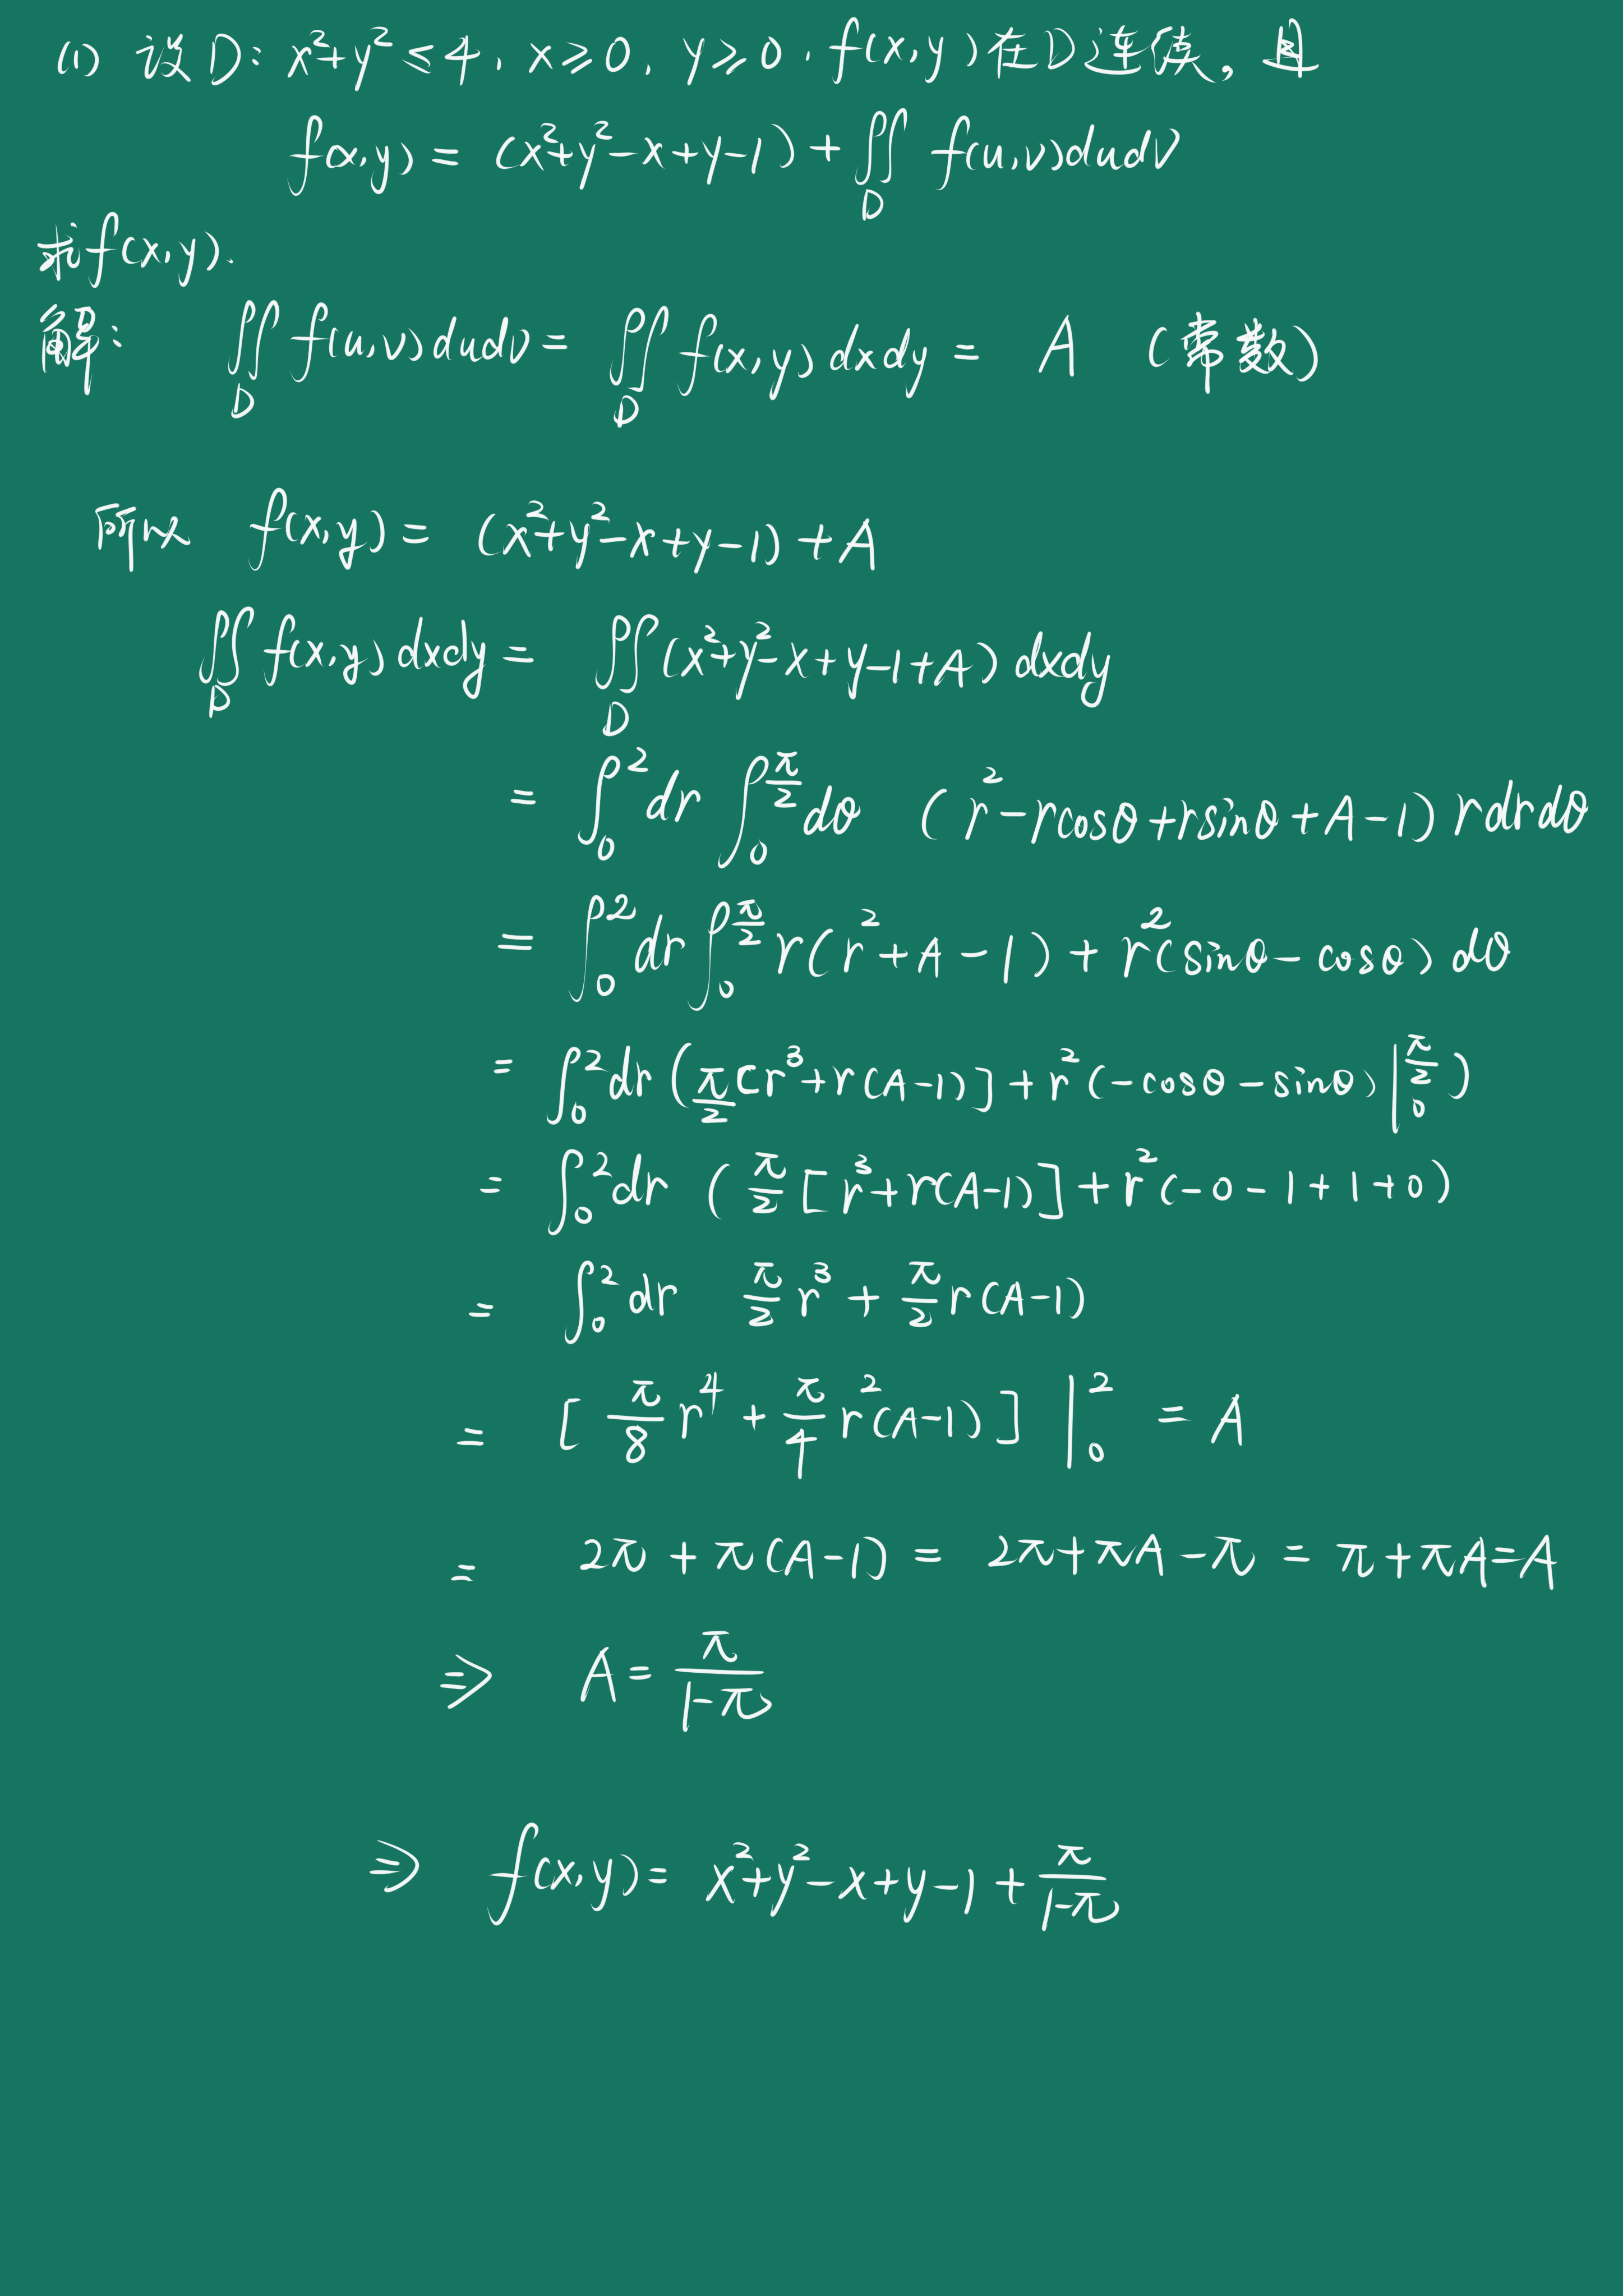 (1) 设D: x²+y²≤4, x≥0, y≥0, f(x,y)在D连续, 且
f(x,y) = (x²+y²-x+y-1) + ∬_D f(u,v)dudv
求f(x,y).
解: ∬_D f(u,v)dudv = ∬_D f(x,y)dxdy = A (常数)
所以 f(x,y) = (x²+y²-x+y-1)+A
∬_D f(x,y)dxdy = ∬_D (x²+y²-x+y-1+A)dxdy
= ∫₀² dr ∫₀^{π/2} dθ (r²-rcosθ+rsinθ+A-1) rdrdθ
= ∫₀² dr ∫₀^{π/2} r(r²+A-1) + r²(sinθ-cosθ) dθ
= ∫₀² dr (π/2 [r³+r(A-1)] + r²(-cosθ-sinθ)|₀^{π/2})
= ∫₀² dr (π/2 [r³+r(A-1)] + r²(-0-1+1+0)
= ∫₀² dr π/2 r³ + π/2 r(A-1)
= [π/8 r⁴ + π/4 r²(A-1)] |₀² = A
= 2π+π(A-1) = 2π+πA-π = π+πA=A
⇒ A = π/(1-π)
⇒ f(x,y) = x²+y²-x+y-1+π/(1-π)